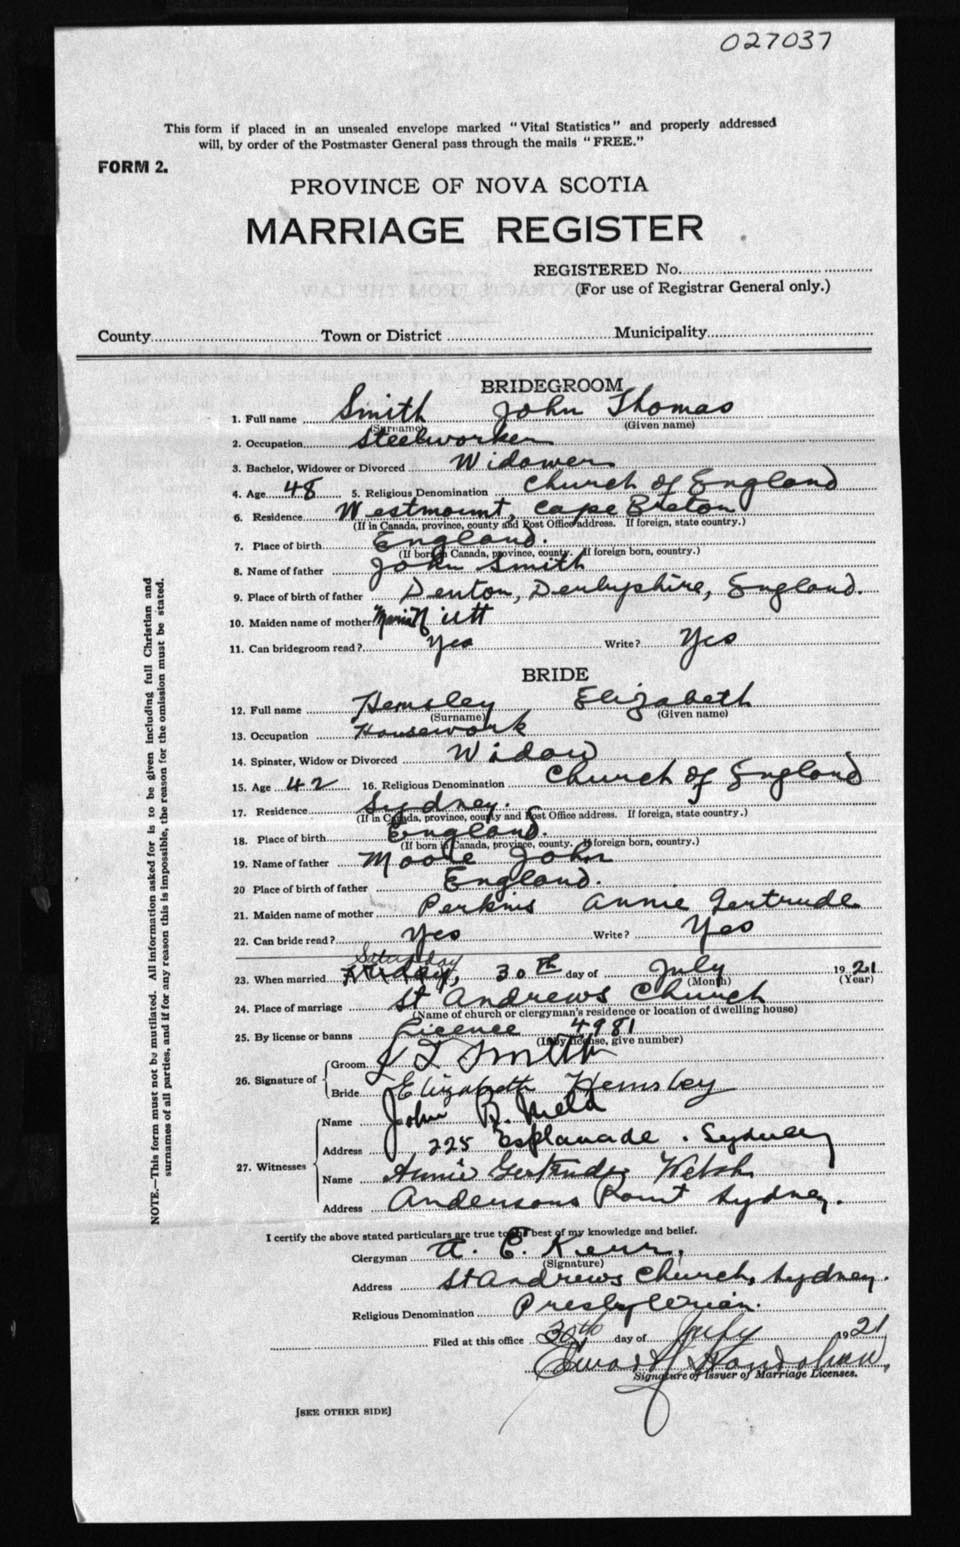 027037
This form if placed in an unsealed envelope marked "Vital Statistics" and properly addressed
will, by order of the Postmaster General pass through the mails "FREE."
FORM 2.
PROVINCE OF NOVA SCOTIA
MARRIAGE REGISTER
REGISTERED No.
(For use of Registrar General only.)
County Town or District Municipality
BRIDEGROOM
1. Full name Smith John Thomas
(Surname) (Given name)
2. Occupation Steelworker
3. Bachelor, Widower or Divorced Widower
4. Age 48 5. Religious Denomination Church of England
6. Residence Westmount, Cape Breton
(If in Canada, province, county and Post Office address. If foreign, state country.)
7. Place of birth England.
(If born in Canada, province, county. If foreign born, country.)
8. Name of father John Smith
9. Place of birth of father Denton, Derbyshire, England.
10. Maiden name of mother
11. Can bridegroom read? Yes Write? Yes
BRIDE
12. Full name Hemsley Elizabeth
(Surname) (Given name)
13. Occupation Housework
14. Spinster, Widow or Divorced Widow
15. Age 42 16. Religious Denomination Church of England
17. Residence Sydney.
(If in Canada, province, county and Post Office address. If foreign, state country.)
18. Place of birth England.
(If born in Canada, province, county. If foreign born, country.)
19. Name of father Moore John
20 Place of birth of father England.
21. Maiden name of mother Perkins Annie Gertrude
22. Can bride read? Yes Write? Yes
Saturday
23. When married Friday, 30th day of July 1921
(Month) (Year)
24. Place of marriage St Andrews Church
(Name of church or clergyman's residence or location of dwelling house)
25. By license or banns Licence 4981
(If by license, give number)
26. Signature of Groom J T Smith
Bride Elizabeth Hemsley
27. Witnesses Name John R.
Address 225 Esplanade. Sydney
Name Annie Gertrude Welsh
Address Andersons Point Sydney.
I certify the above stated particulars are true to the best of my knowledge and belief.
Clergyman A. C. Kerr,
(Signature)
Address St Andrews Church, Sydney.
Religious Denomination Presbyterian.
Filed at this office 30th day of July 1921
Signature of Issuer of Marriage Licenses.
[SEE OTHER SIDE]
NOTE.—This form must not be mutilated. All information asked for is to be given including full Christian and
surnames of all parties, and if for any reason this is impossible, the reason for the omission must be stated.